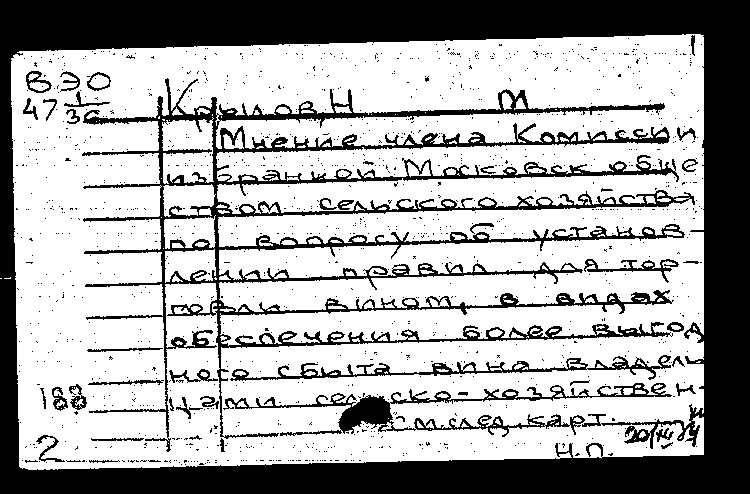 ВЭО
47 1/36
Крылов, Н м
Мнение члена Комиссии
избранной Московск обще
ством сельского хозяйства
по вопросу об установ-
лении правил для тор-
говли вином, в видах
обеспечения более выгод
ного сбыта вина владель
188 цами сельско-хозяйствен-
см.след.карт.
2 Н.П.